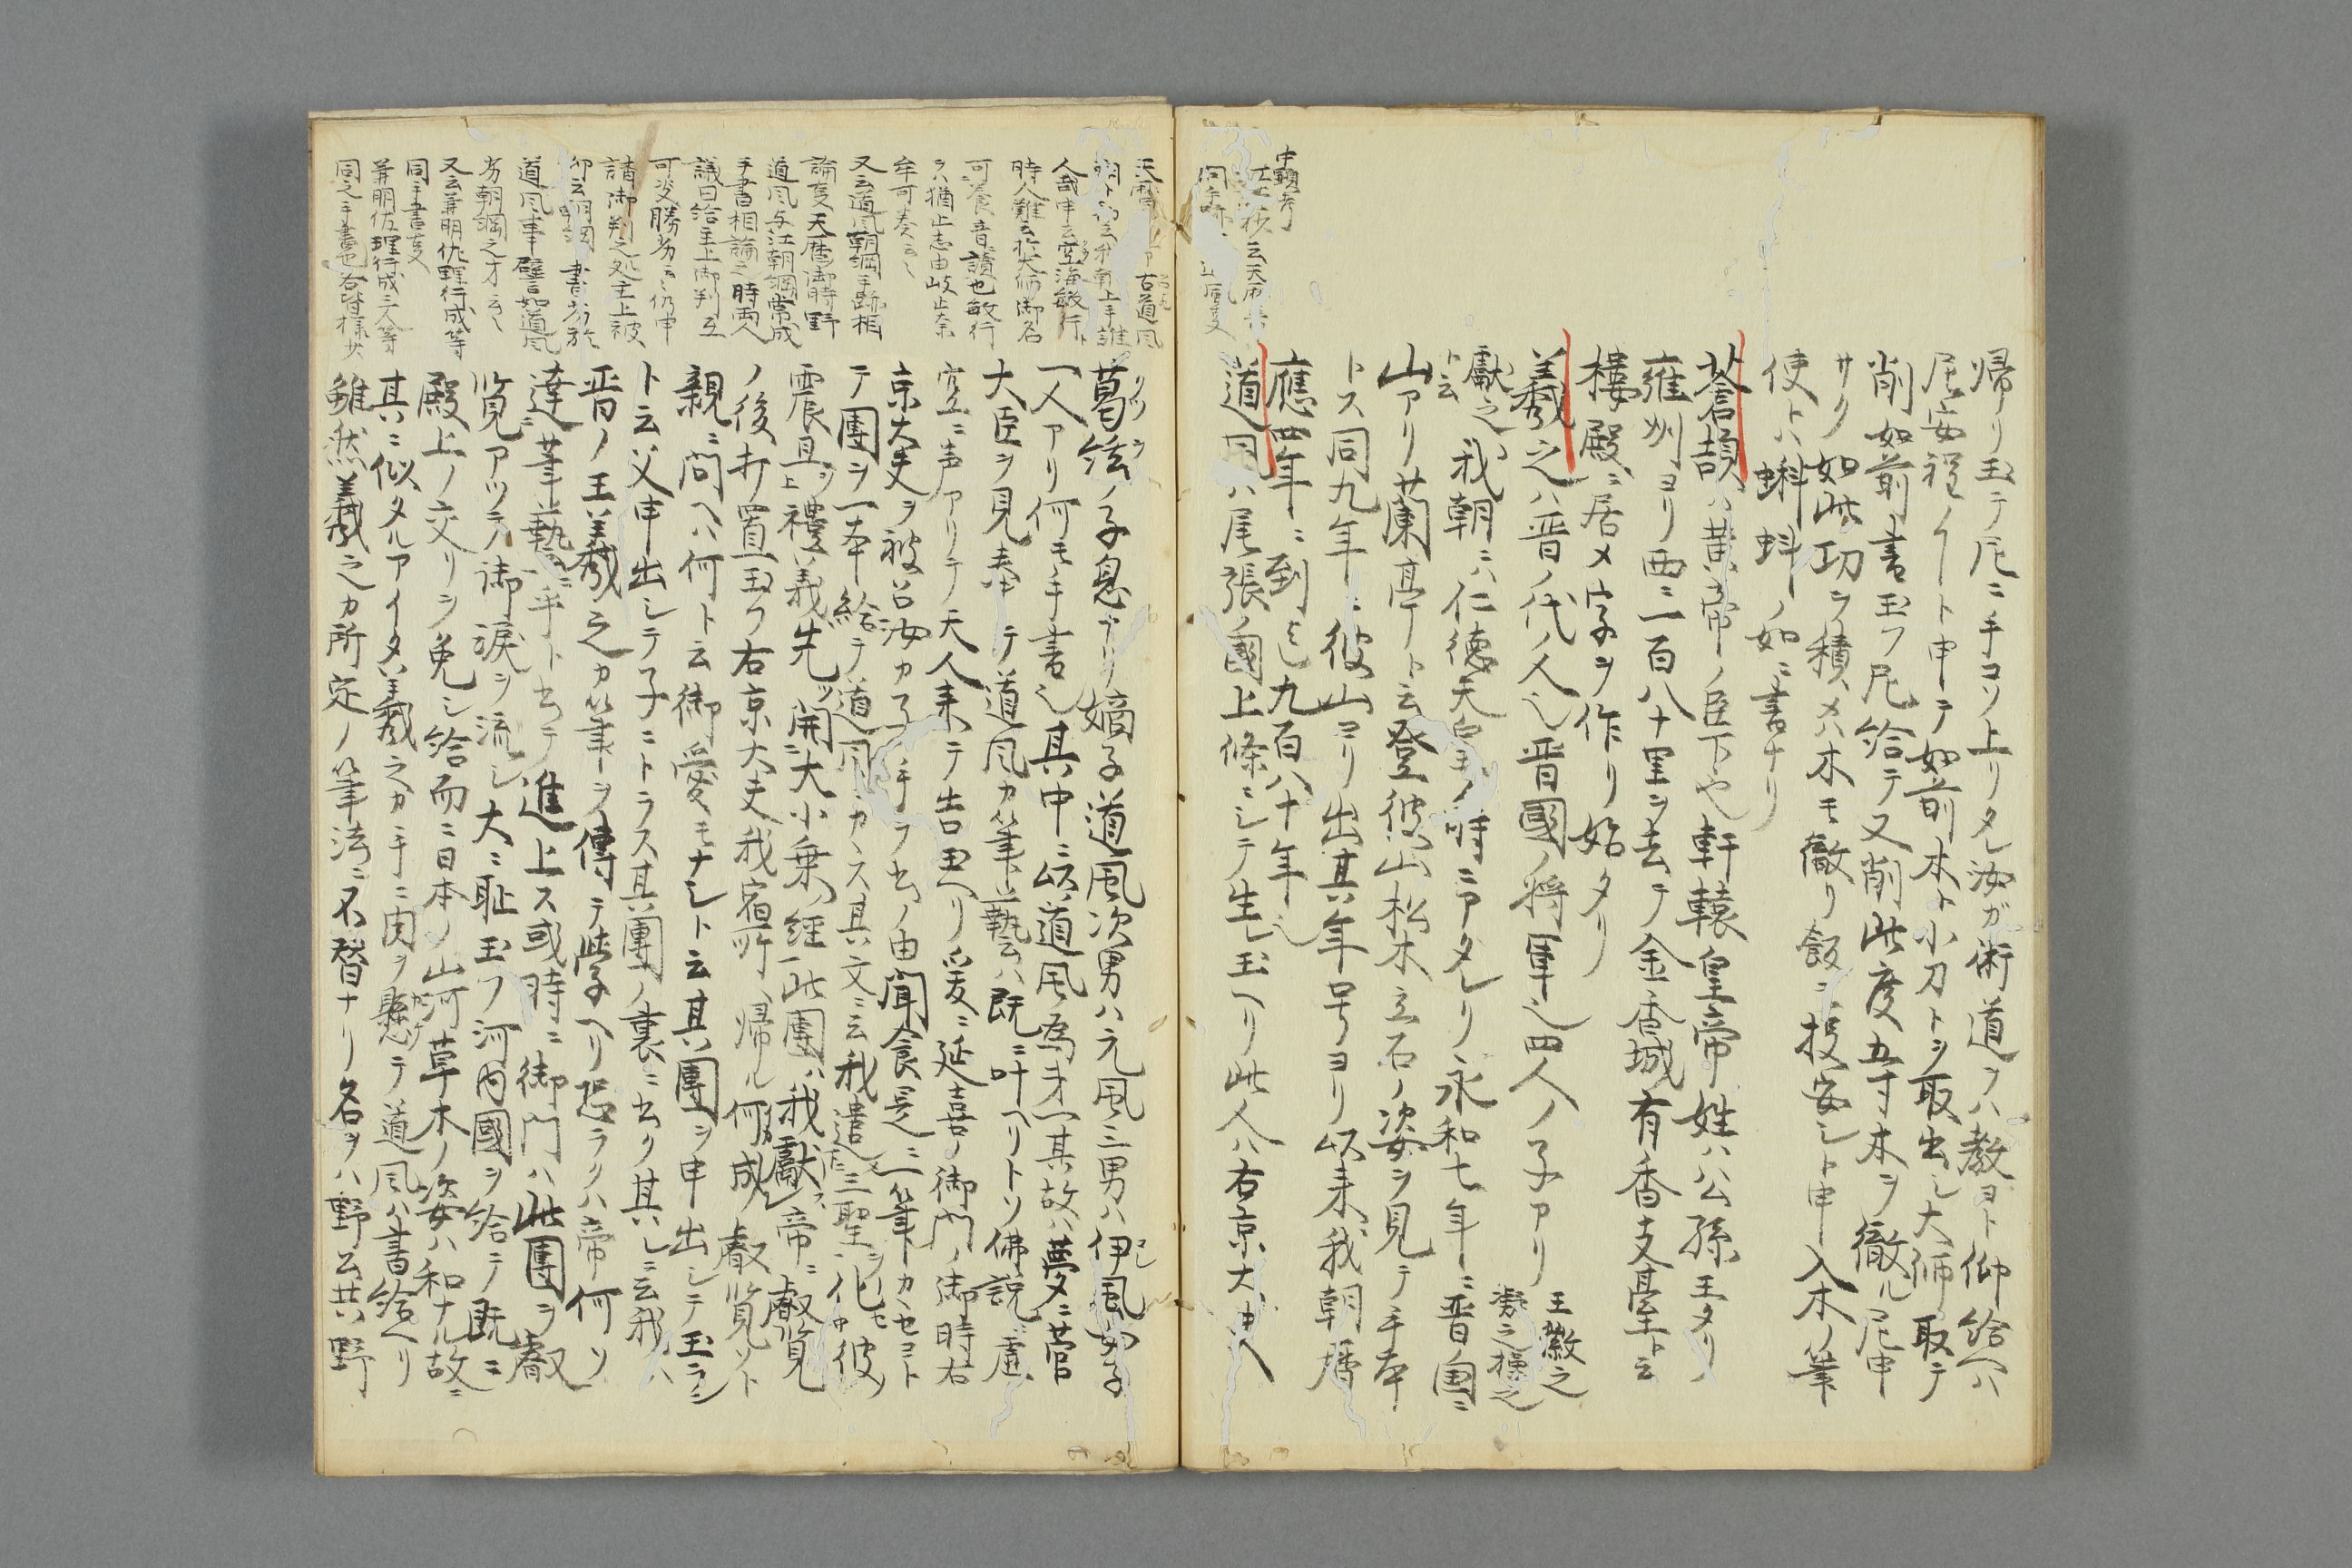 帰リ玉テ尼ニ手コソ上リタレ汝ガ術道ヲハ教ヨト仰給ヘハ
尼安程ノイト申テ如前木ト小刀トヲ取出シ大師取テ
削如前書玉フ尼給テ又削此度五寸木ヲ徹ル尼申
サク如此功ヲ積メハ木モ徹リ飯ニ投安シト申入木ノ筆
使トハ蝌蚪ノ如ニ書ナリ
蒼頡ハ黄帝ノ臣下也軒轅皇帝姓ハ公孫王タリ
雍州ヨリ西ニ一百八十里ヲ去テ金香城有香支臺ト云
樓殿ニ居メ字ヲ作リ始タリ
羲之ハ晋ノ代ノ人也晋國ノ将軍也四人ノ子アリ
王徽之
凝之操之
獻之
ト云
我朝ニハ仁徳天皇ノ時ニアタレリ永和七年ニ晋国ニ
山アリ蘭亭ト云登彼山松木立石ノ姿ヲ見テ手本
トス同九年ニ彼山ヨリ出其年号ヨリ以来我朝暦
應四年ニ到マテ九百八十年也
道風ハ尾張國上條ニシテ生レ玉ヘリ此人ハ右京大夫
葛絃ノ子息ナリ嫡子道風次男ハ元風三男ハ伊風
一人アリ何モ手書也其中ニ以道風為才一其故ハ夢ニ菅
大臣ヲ見奉テ道風カ筆藝ハ既ニ叶ヘリトソ佛説虚
空ニ声アリテ天人来テ告玉ヘリ爰ニ延喜ノ御門ノ御時右
京大夫ヲ被召汝カ子手ヲ書ノ由聞食是ニ一筆カヽセヨト
テ團ヲ一本給テ道風カス其文ニ云我遣三聖ヲ化彼
震旦上禮義先ツ開大小乗経此團ハ我獻帝ニ叡覧
ノ後打置玉フ右京大夫我宿所ヘ帰ル何成ル叡覧ソト
親ニ問ヘハ何ト云御愛モナシト云其團ヲ申出シテ玉ラシ
ト云父申出シテ子ニトラス其團ノ裏ニ書ク其レニ云我ハ
晋ノ王羲之カ筆ヲ傳テ此學ヘリ恐ラクハ帝何ソ
達筆藝ニ乎ト書テ進上ス或時ニ御門ハ此團ヲ叡
覧アツテ御涙ヲ流シ大ニ耻玉フ河内國ヲ給テ既ニ
殿上ノ交リヲ免シ給而ニ日本ノ山河草木ノ姿ハ和ナル故ニ
其ニ似タルアイタハ羲之カ手ニ肉ヲ懸テ道風ハ書給ヘリ
雖然羲之カ所定ノ筆法ニ不替ナリ名ヲハ野公共野
人敏申云空海敏行ト
時人難云於大師御名
可喚音讀也敏行
ハ猶止志由岐止奈
牟可奏云々
又云道風朝綱手跡相
論事天暦御時野
道風与江朝綱常成
手書相論之時両人
議曰給主上御判互
可决勝劣云々仍申
請御判之処主上被
仰云朝綱書劣於
道風事譬如道風
劣朝綱之才云々
又云兼明佐理行成等
同手書事
兼明佐理行成三人等
同之手書也各皆様少